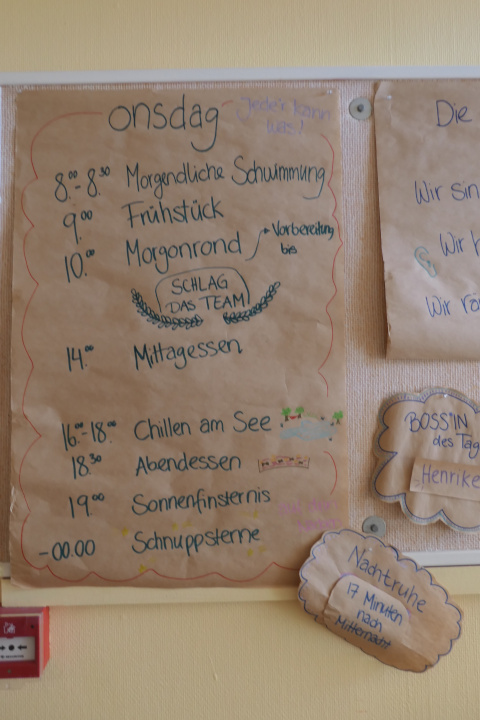 onsdag
Jeder kann
was!
8.⁰⁰-8.³⁰ Morgendliche Schwimmung
9⁰⁰ Frühstück
10.⁰⁰ Morgonrond → Vorbereitung
bis
SCHLAG
DAS TEAM
14.⁰⁰ Mittagessen
16.⁰⁰-18.⁰⁰ Chillen am See
18.³⁰ Abendessen
19⁰⁰ Sonnenfinsternis
-00.00 Schnuppsterne
Die
Wir sin
Wir
Wir
BOSS*IN
des Tag
Henrike
Nachtruhe
17 Minuten
nach
Mitternacht